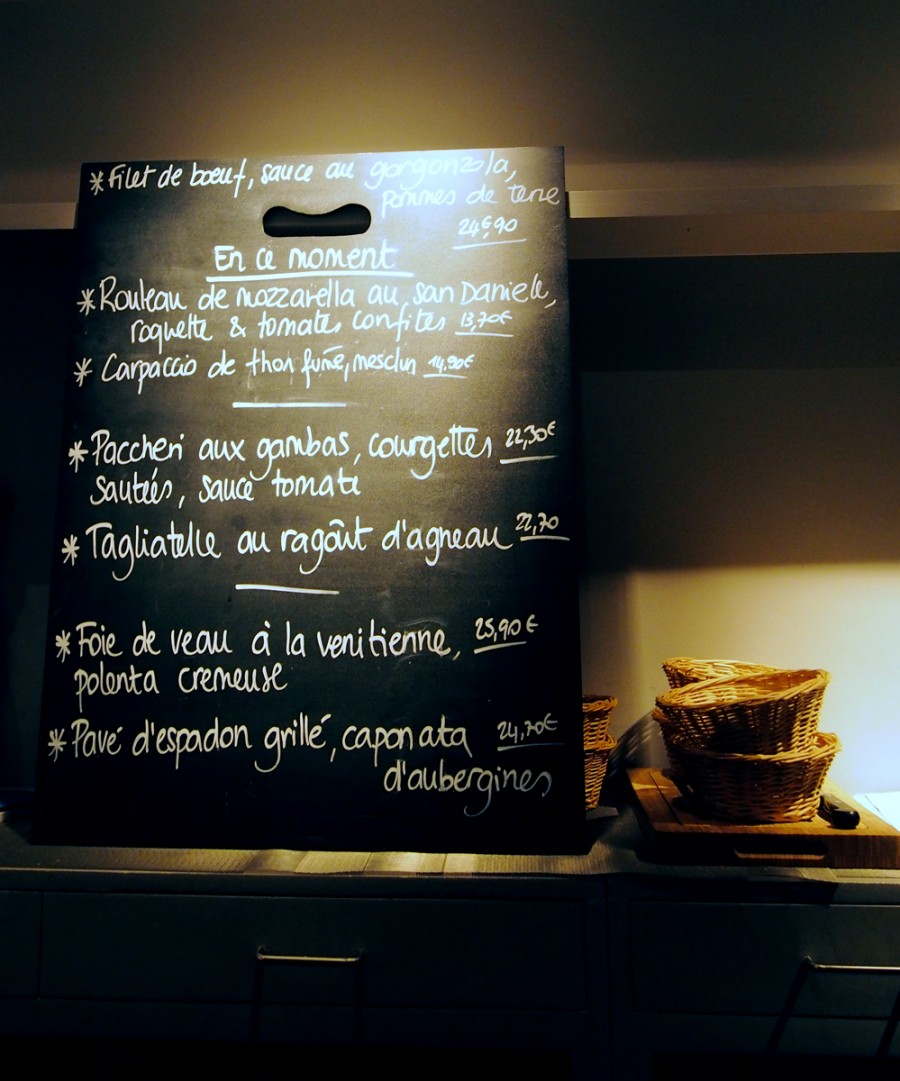 * Filet de bœuf, sauce au gorgonzola,
pommes de terre
24€90
En ce moment
* Rouleau de mozzarella au san Daniele,
roquette & tomates confites 13,70€
* Carpaccio de thon fumé, mesclun 14,90€
* Paccheri aux gambas, courgettes 22,30€
sautées, sauce tomate
* Tagliatelle au ragoût d'agneau 22,70
* Foie de veau à la venitienne, 25,90€
polenta cremeuse
* Pavé d'espadon grillé, caponata 24,70€
d'aubergines